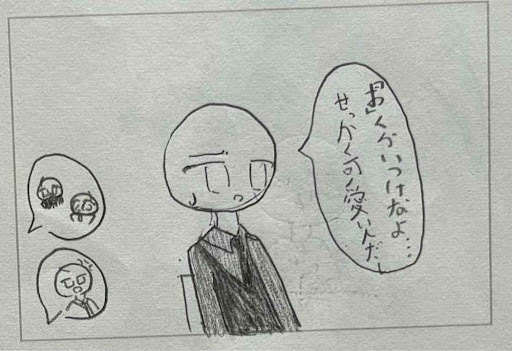 「お」くらいつけなよ…
せっかく可愛いんだし